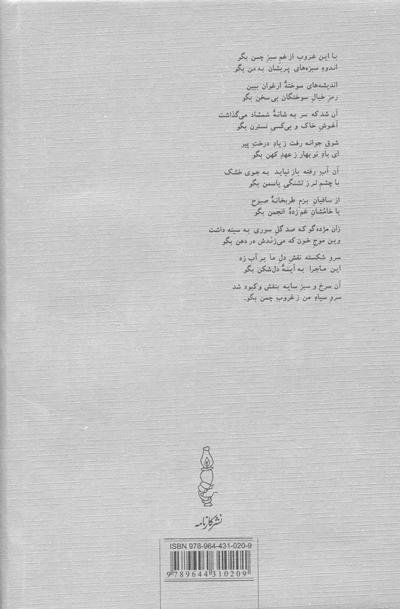 با این غروب از غم سبز چمن بگو
اندوه سبزه‌های پریشان به من بگو
اندیشه‌های سوختهٔ ارغوان ببین
رمز خیال سوختگان بی‌سخن بگو
آن شد که سر به شانهٔ شمشاد می‌گذاشت
آغوش خاک و بی‌کسی نسترن بگو
شوق جوانه رفت ز یاد درخت پیر
ای باد نوبهار ز عهد کهن بگو
آن آب رفته باز نیاید به جوی خشک
با چشم تر ز تشنگی یاسمن بگو
از ساقیان بزم طربخانهٔ صبوح
با خامشان غم‌زدهٔ انجمن بگو
زان مژده گو که صد گل سوری به سینه داشت
وین موج خون که می‌زندش در دهن بگو
سرو شکسته نقش دل ما بر آب زد
این ماجرا به آینهٔ دل‌شکن بگو
آن سرخ و سبز سایه بنفش و کبود شد
سرو سیاه من ز غروب چمن بگو.
نشر کارنامه
ISBN 978-964-431-020-9
9 789644 310209